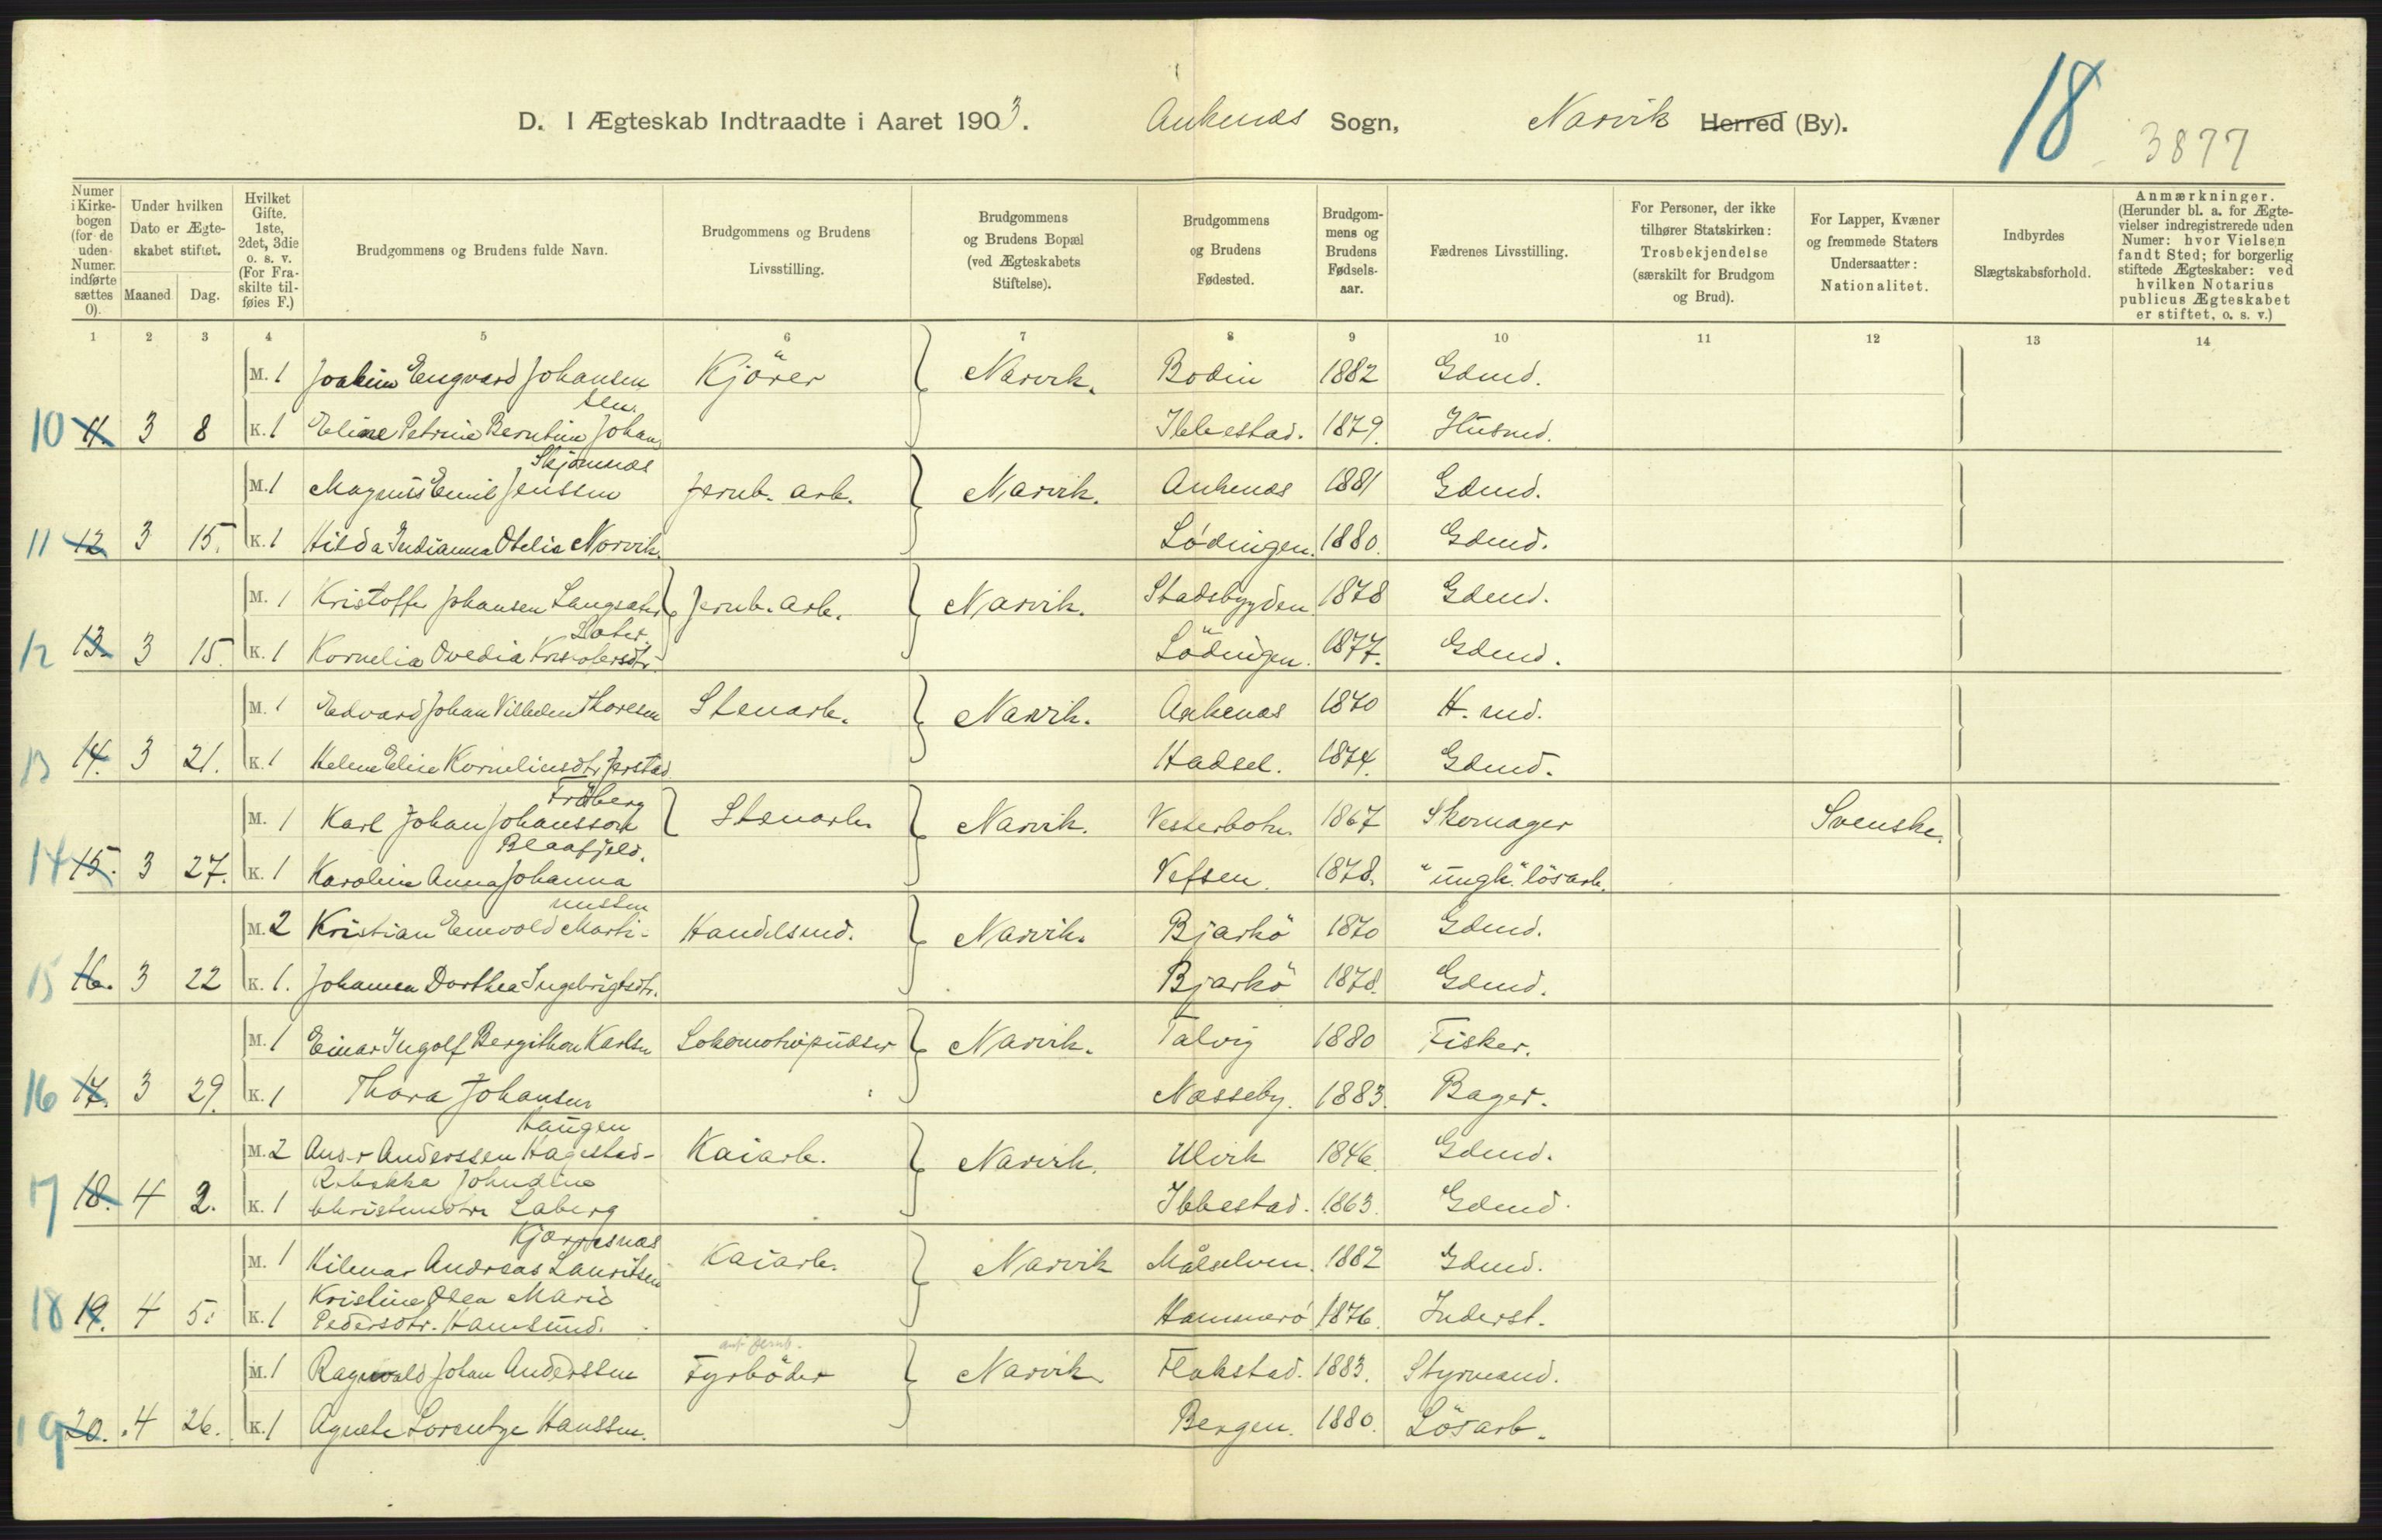 18
3877
D. I Ægteskab Indtraadte i Aaret 1903. Ankenæs Sogn, Narvik Herred (By).
Numer i Kirkebogen (for de uden Numer indførte sættes 0).
Under hvilken Dato er Ægteskabet stiftet.
Maaned Dag.
Hvilket Gifte. 1ste, 2det, 3die o. s. v. (For Fraskilte tilføies F.)
Brudgommens og Brudens fulde Navn.
Brudgommens og Brudens Livsstilling.
Brudgommens og Brudens Bopæl (ved Ægteskabets Stiftelse).
Brudgommens og Brudens Fødested.
Brudgommens og Brudens Fødselsaar.
Fædrenes Livsstilling.
For Personer, der ikke tilhører Statskirken: Trosbekjendelse (særskilt for Brudgom og Brud).
For Lapper, Kvæner og fremmede Staters Undersaatter: Nationalitet.
Indbyrdes Slægtskabsforhold.
Anmærkninger. (Herunder bl. a. for Ægtevielser indregistrerede uden Numer: hvor Vielsen fandt Sted; for borgerlig stiftede Ægteskaber: ved hvilken Notarius publicus Ægteskabet er stiftet, o. s. v.)
1 2 3 4 5 6 7 8 9 10 11 12 13 14
M. 1 Joakim Engvard Johansen Kjörer Narvik. Bodin 1882 Gdmd.
sen.
10 11. 3 8 K. 1 Eline Petrine Berntine Johan Ibbestad. 1879. Husmd.
Skjomnæs
M. 1 Magnus Emil Jenssen Jernb. arb. Narvik. Ankenæs 1881 Gdmd.
11 12 3 15. K. 1 Hilda Indianna Otelie Norvik. Lödingen. 1880. Gdmd.
M. 1 Kristoffer Johansen Langsæter Jernb. arb. Narvik. Stadsbygden 1878 Gdmd.
12 13. 3 15. K. 1 Kornelia Ovedia Lödingen. 1877. Gdmd.
M. 1 Edvard Johan Vilhelm Thoresen Stenarb. Narvik. Ankenæs 1870 H. md.
13 14. 3 21. K. 1 Helene Eline Korneliusdtr Jerstad Hadsel. 1874. Gdmd.
Fröberg
M. 1 Karl Johan Johansson Stenarb. Narvik. Vesterbotn. 1867 Skomager Svenske.
Blaafjeld.
14 15. 3 27. K. 1 Karoline Anna Johanna Vefsen. 1878. "ungk." lösarb.
nussen
M. 2 Kristian Enevold Marti- Handelsmd. Narvik. Bjarkö 1870 Gdmd.
15 16. 3 22 K. 1. Johanna Dorthea Ingebrigtsdtr. Bjarkö 1878. Gdmd.
M. 1 Einar Ingolf Bergithon Karlsen Lokomotivpudser Narvik. Talvig 1880 Fisker.
16 17. 3 29. K. 1 Thora Johansen Næsseby. 1883. Bager.
Haugen
M. 2 Anders Anderssen Hagestad- Kaiarb. Narvik. Ulvik 1846. Gdmd.
Rebekka Johndine
17 18. 4 2. K. 1 Christensdtr Laberg Ibbestad. 1863. Gdmd.
Kjærresnæs
M. 1 Hilmar Andreas Lauritsen Kaiarb. Narvik Målselven. 1882 Gdmd.
Kristine Olea Marie
18 19. 4 5. K. 1 Pedersdtr. Hamsund. Hammerö 1876. Inderst.
M. 1 Ragnvald Johan Anderssen Fyrböder Narvik Flakstad. 1883. Styrmand.
19 20. 4 26. K. 1 Agnete Lorentze Hanssen. Bergen. 1880. Lösarb.